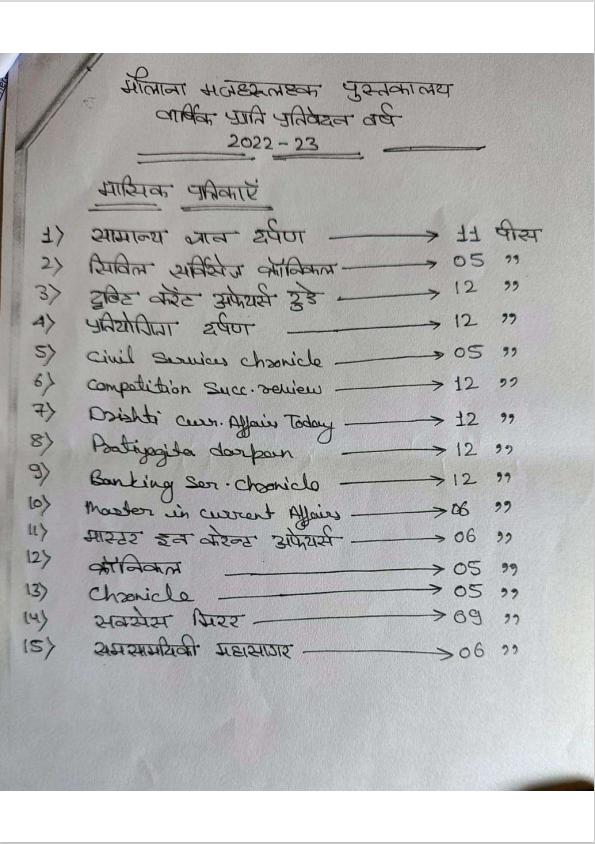 मौलाना मजहरूलहक पुस्तकालय
वार्षिक प्रगति प्रतिवेदन वर्ष
2022-23
मासिक पत्रिकाएँ
1) सामान्य ज्ञान दर्पण → 11 पीस
2) सिविल सर्विसेज क्रॉनिकल → 05 ”
3) दृष्टि करेंट अफेयर्स टुडे → 12 ”
4) प्रतियोगिता दर्पण → 12 ”
5) Civil Services Chronicle → 05 ”
6) Competition Succ. review → 12 ”
7) Drishti Curr. Affair Today → 12 ”
8) Pratiyogita darpan → 12 ”
9) Banking Ser. Chronicle → 12 ”
10) Master in current Affairs → 06 ”
11) मास्टर इन करेन्ट अफेयर्स → 06 ”
12) क्रॉनिकल → 05 ”
13) Chronicle → 05 ”
14) सक्सेस मिरर → 09 ”
15) समसामयिकी महासागर → 06 ”